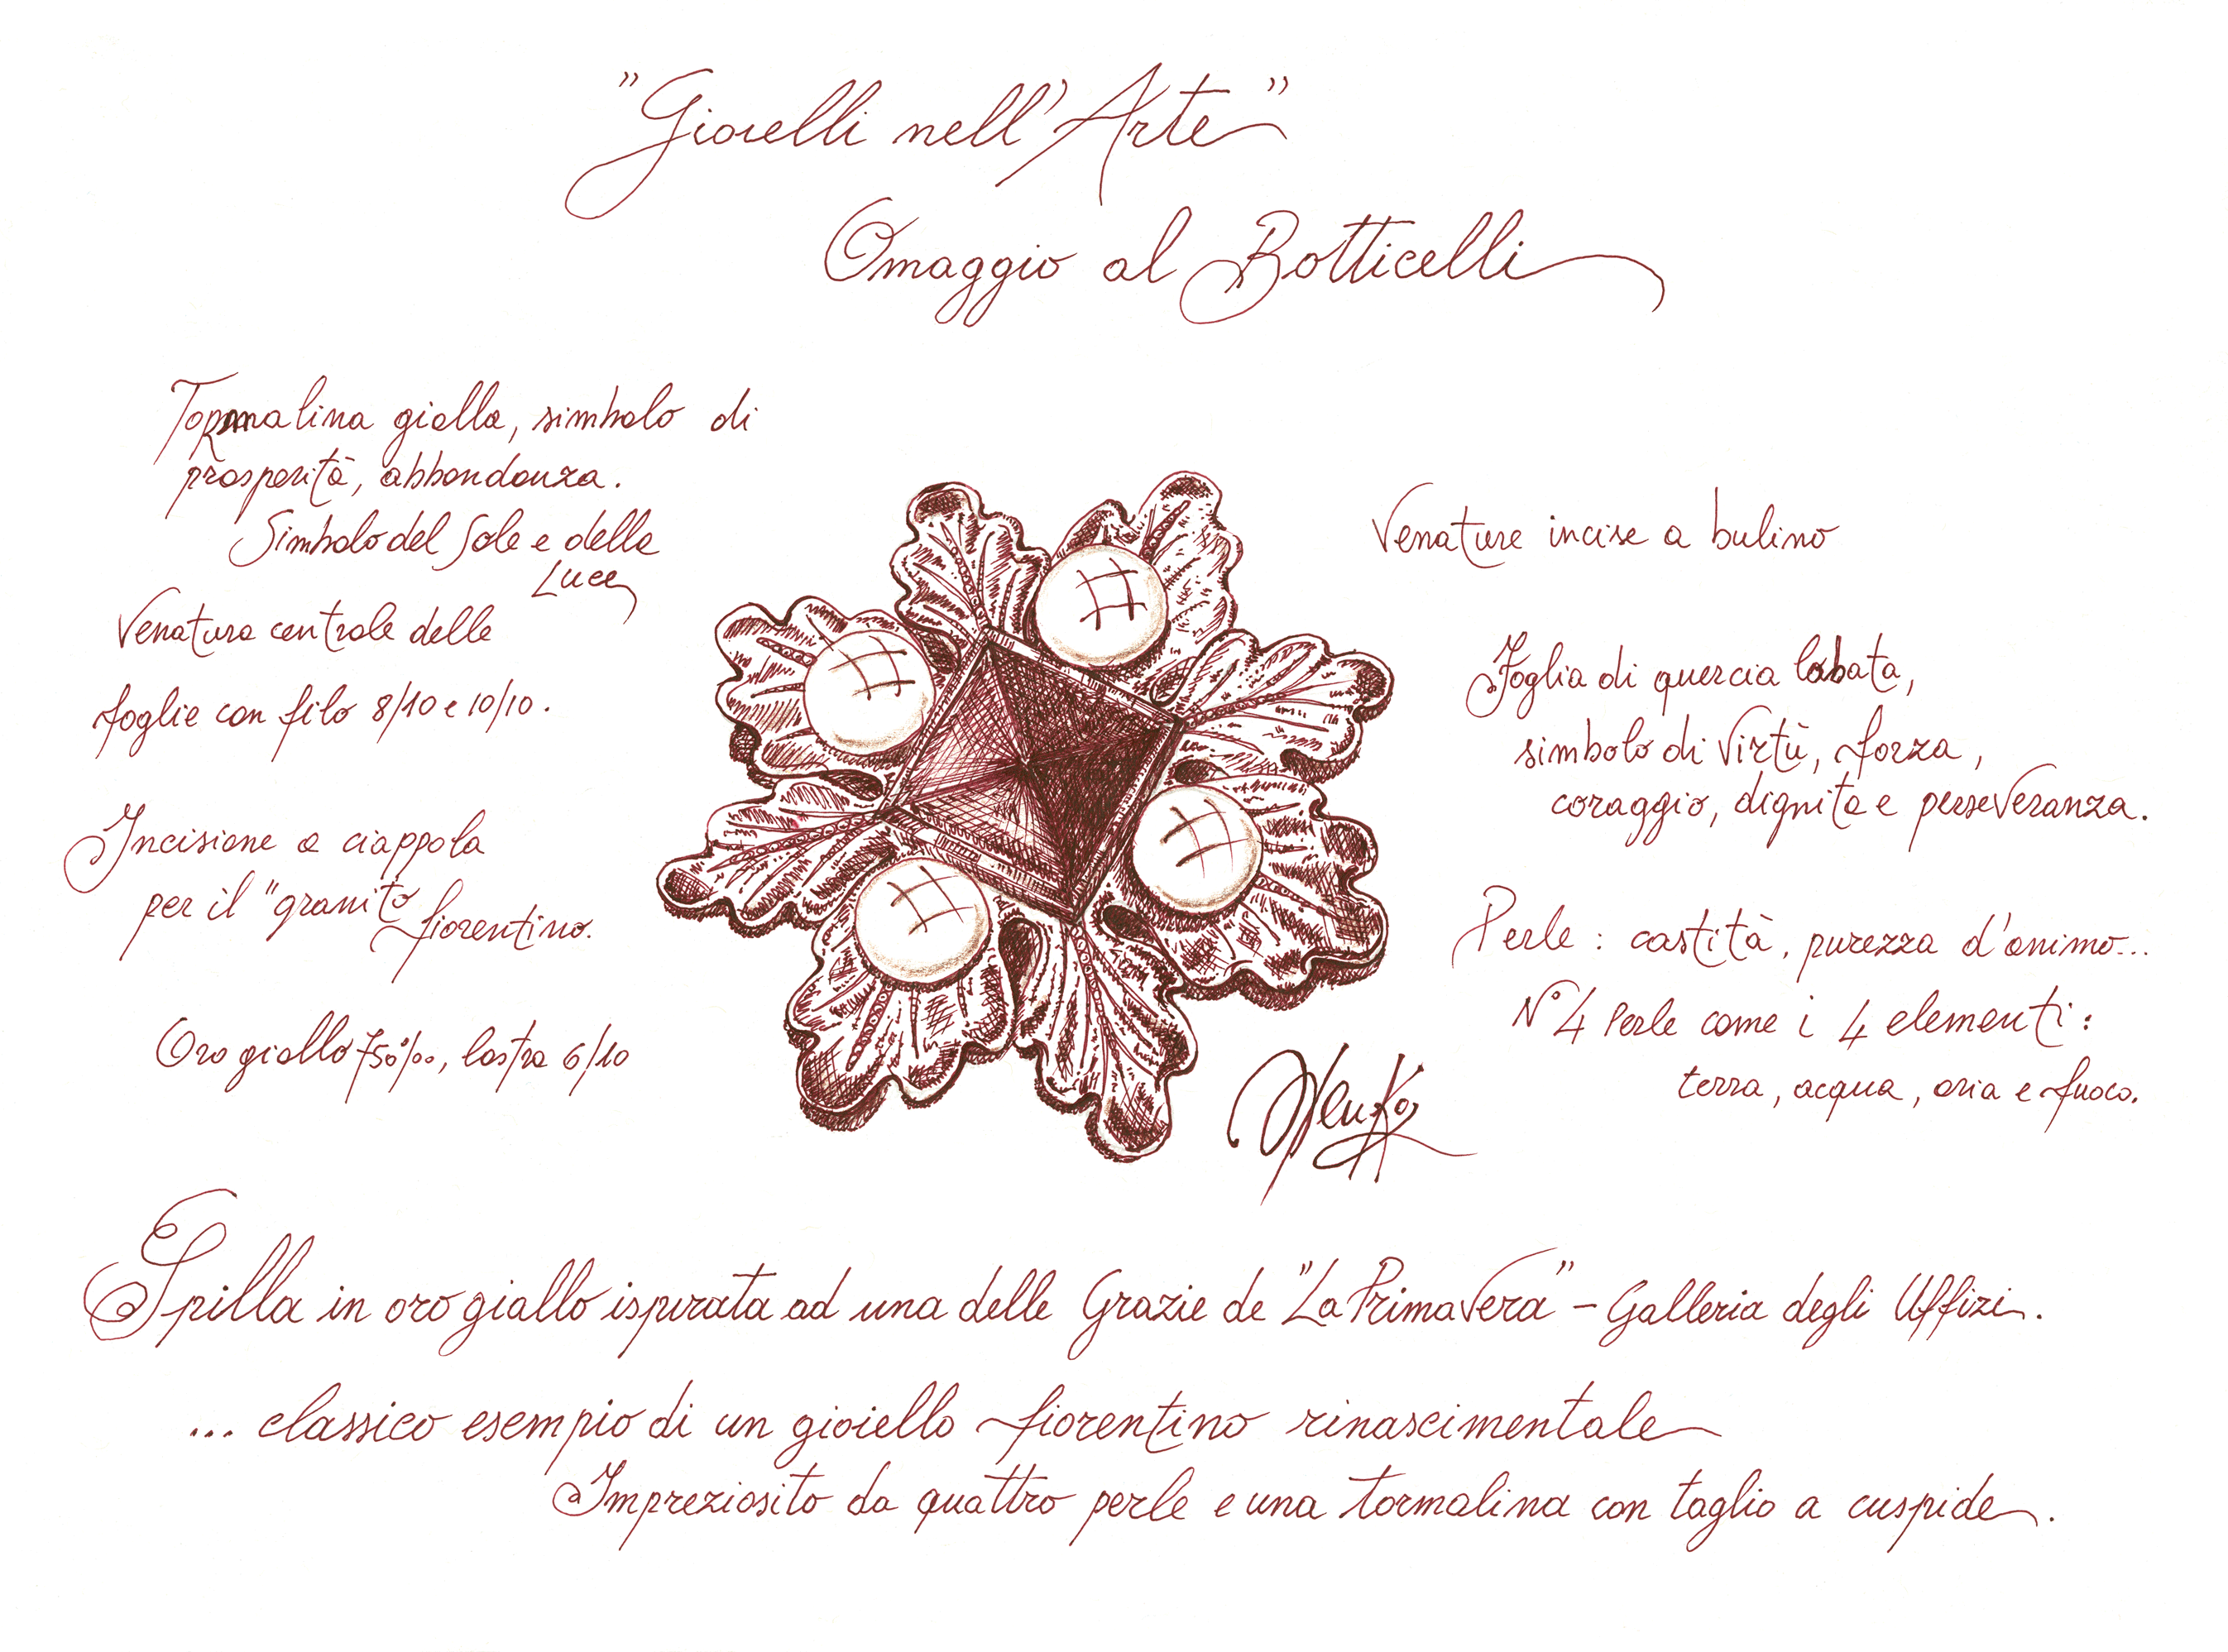 "Gioielli nell'Arte"
Omaggio al Botticelli
Tormalina gialla, simbolo di
prosperità, abbondanza.
Simbolo del Sole e della
Luce
Venatura centrale delle
foglie con filo 8/10 e 10/10.
Incisione a ciappola
per il "granito
fiorentino.
Oro giallo 750‰, lastra 6/10
Venature incise a bulino
Foglia di quercia lobata,
simbolo di Virtù, forza,
coraggio, dignità e perseveranza.
Perle: castità, purezza d'animo...
N°4 Perle come i 4 elementi:
terra, acqua, aria e fuoco.
Spilla in oro giallo ispirata ad una delle Grazie de "La Primavera" – Galleria degli Uffizi.
... classico esempio di un gioiello fiorentino rinascimentale
Impreziosito da quattro perle e una tormalina con taglio a cuspide.